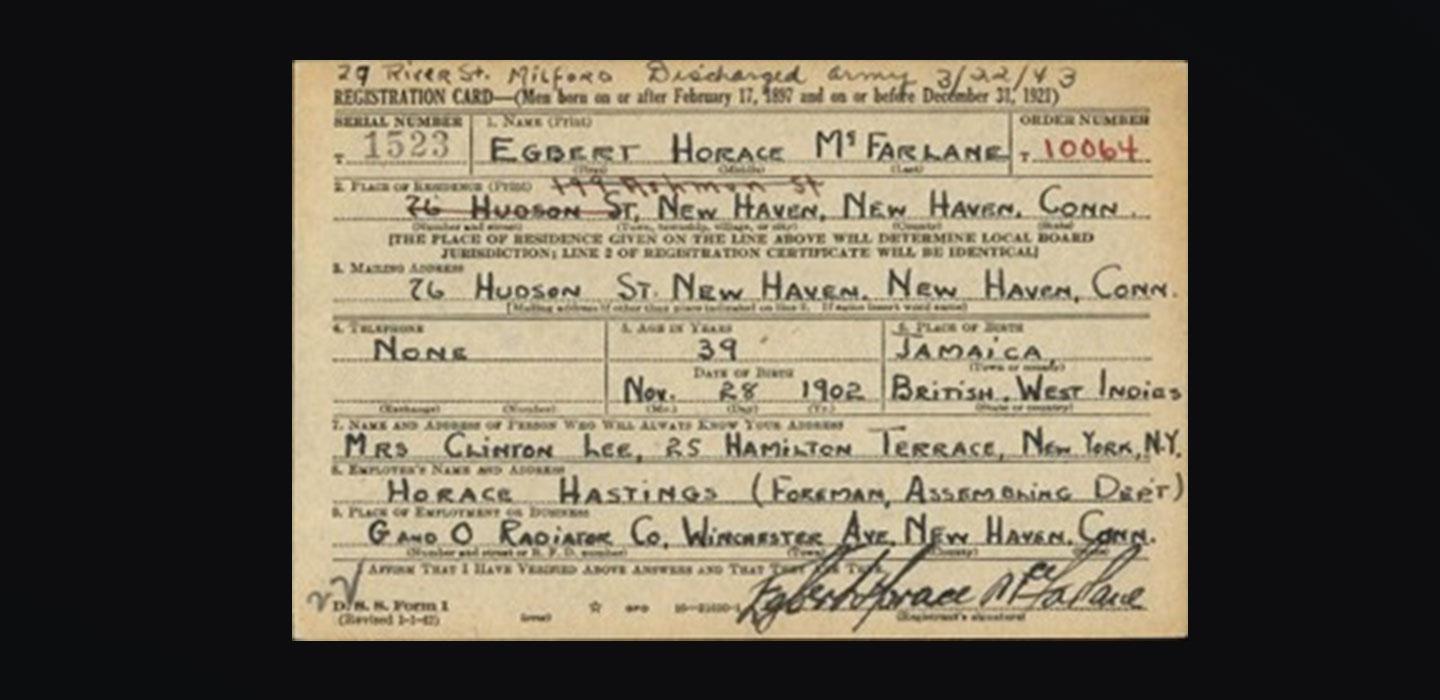 29 River St. Milford Discharged army 3/22/43
REGISTRATION CARD—(Men born on or after February 17, 1897 and on or before December 31, 1921)
SERIAL NUMBER 1. NAME (Print) ORDER NUMBER
T 1523 EGBERT HORACE McFARLANE T 10064
(First) (Middle) (Last)
2. PLACE OF RESIDENCE (Print) 199 Ashmun St
76 HUDSON ST, NEW HAVEN, NEW HAVEN, CONN.
(Number and street) (Town, township, village, or city) (County) (State)
[THE PLACE OF RESIDENCE GIVEN ON THE LINE ABOVE WILL DETERMINE LOCAL BOARD
JURISDICTION; LINE 2 OF REGISTRATION CERTIFICATE WILL BE IDENTICAL]
3. MAILING ADDRESS
76 HUDSON ST. NEW HAVEN. NEW HAVEN, CONN.
[Mailing address if other than place indicated on line 2. If same insert word same]
4. TELEPHONE 5. AGE IN YEARS 6. PLACE OF BIRTH
NONE 39 JAMAICA,
DATE OF BIRTH (Town or county)
Nov. 28 1902 BRITISH WEST INDIES
(Exchange) (Number) (Mo.) (Day) (Yr.) (State or country)
7. NAME AND ADDRESS OF PERSON WHO WILL ALWAYS KNOW YOUR ADDRESS
MRS CLINTON LEE, 25 HAMILTON TERRACE, NEW YORK, N.Y.
8. EMPLOYER'S NAME AND ADDRESS
HORACE HASTINGS (FOREMAN, ASSEMBLING DEPT)
9. PLACE OF EMPLOYMENT OR BUSINESS
G AND O RADIATOR CO, WINCHESTER AVE, NEW HAVEN, CONN.
(Number and street or R. F. D. number) (Town) (County) (State)
I AFFIRM THAT I HAVE VERIFIED ABOVE ANSWERS AND THAT THEY ARE TRUE.
D. S. S. Form 1 GPO Egbert Horace McFarlane
(Revised 1-1-42) (over) (Registrant's signature)